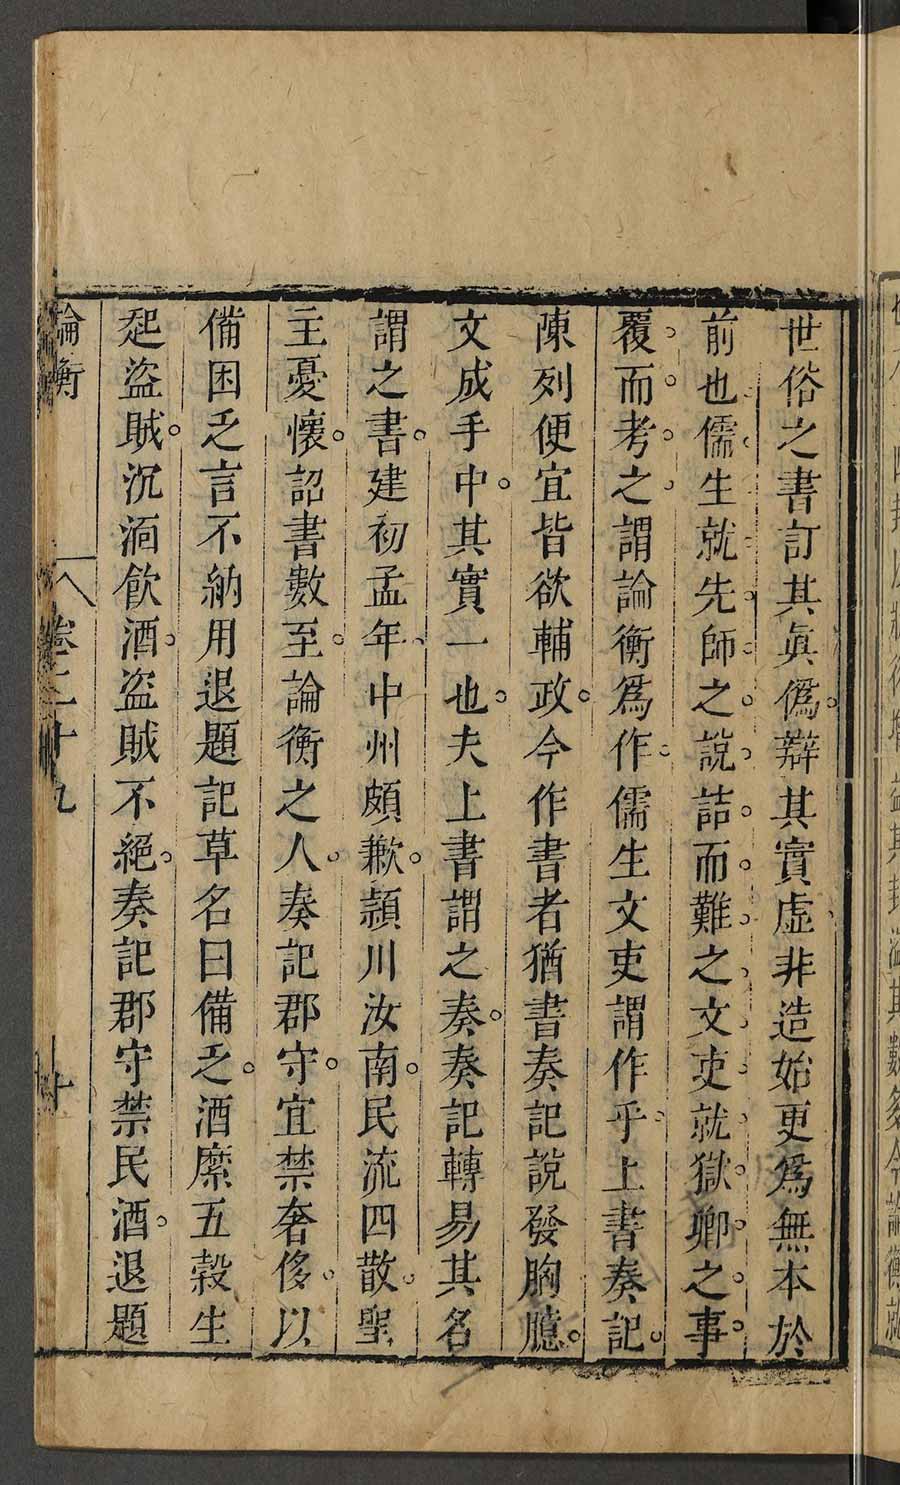 世俗之書訂其眞僞。辯其實虛非造始更爲無本於
前也儒生就先師之說詰而難之文吏就獄卿之事。
覆而考之謂論衡爲作儒生文吏謂作乎上書奏記。
陳列便宜皆欲輔政。今作書者猶書奏記說發胸臆。
文成手中。其實一也。夫上書謂之奏。奏記轉易其名
謂之書。建初孟年、中州頗歉。潁川汝南。民流四散。聖
主憂懷。詔書數至。論衡之人。奏記郡守。宜禁奢侈。以
備困乏言不納用退題記草名曰備乏。酒縻五穀生
起盜賊。沉湎飲酒。盜賊不絕。奏記郡守禁民酒。退題
論衡 卷二十九 十